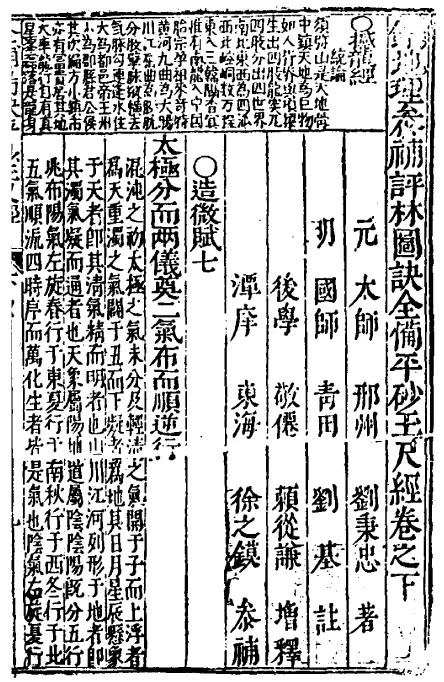 ○撼龍經
統論
須弥山是天地骨
中鎮天地為巨物
如人背脊與項梁
生出四肢龍突兀
四肢分出四世界
南北東西為四派
西北崆峒數萬程
東入三韓隔杳冥
惟有南龍入中國
胎宗孕祖來奇特
黃河九曲為大腸
川江屈曲為膀胱
分肢擘脉縱橫去
氣脉勾連逢水住
大為都邑帝王州
小為郡縣君公侯
其次偏方小鎮市
亦有富貴居其地
大率龍行自有真
星峯磊落是龍身
地理參補評林圖訣全備平砂玉尺經卷之下
元 太師 邢州 劉秉忠 著
明 國師 青田 劉基 註
後學 敬僊 賴從謙 增釋
潭庠 東海 徐之鏌 參補
○造微賦七
太極分而兩儀奠二氣布而順逆行
混沌之初太極之氣未分及輕清之氣開于子而上浮者
爲天重濁之氣闢于丑而下凝者爲地其日月星辰懸象
于天者即其清氣精而明者也山川江河列形于地者即
其濁氣凝而適者也天象屬陽地道屬陰陰陽既分五行
兆布陽氣左旋春行于東夏行于南秋行于西冬行于北
五氣順流四時序而萬化生者皆是氣也陰氣右旋夏行